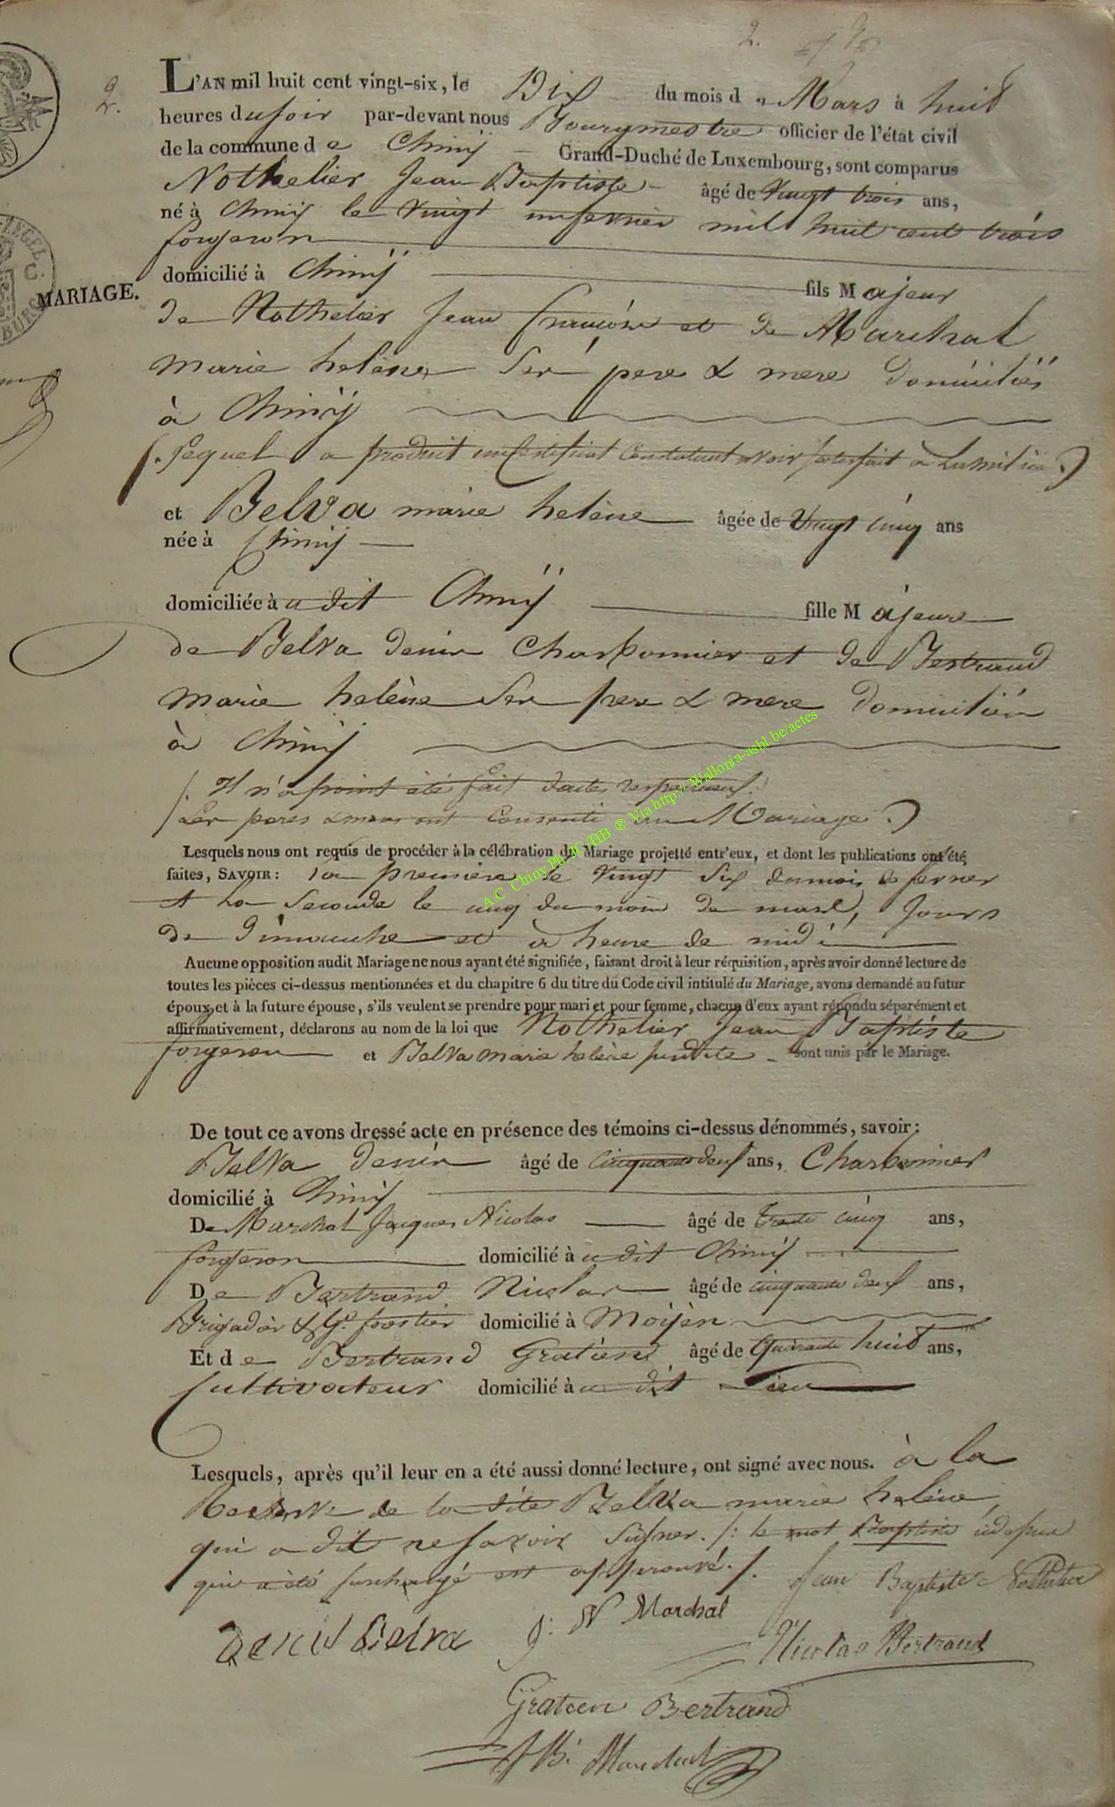 2.
2.
L'AN mil huit cent vingt-six, le Dix du mois de Mars à huit
heures du soir par-devant nous Bourgmestre officier de l'état civil
de la commune de Chiny Grand-Duché de Luxembourg, sont comparus
Nothelier Jean Baptiste âgé de vingt trois ans,
né à Chiny le vingt un fevrier mil huit cent trois
forgeron
domicilié à Chiny fils Majeur
MARIAGE.
de Nothelier Jean François et de Marchal
marie helène ses pere & mere domiciliés
à Chiny
(. lequel a produit un Certificat Constatant avoir satisfait à la milice .)
et Belva marie helène âgée de vingt cinq ans
née à Chiny
domiciliée à u dit Chiny fille Majeure
de Belva denis Charbonnier et de Bertrand
marie helène ses pere & mere domiciliés
à Chiny
/. Il n'a point été fait d'actes respectueux
/ Les peres & meres ont Consenti au Mariage .)
Lesquels nous ont requis de procéder à la célébration du Mariage projetté entr'eux, et dont les publications ont été
faites, SAVOIR: la premiere le vingt six du mois de fevrier
et La Seconde le cinq du mois de mars, jours
de dimanche et à heure de midi
Aucune opposition audit Mariage ne nous ayant été signifiée, faisant droit à leur réquisition, après avoir donné lecture de
toutes les pièces ci-dessus mentionnées et du chapitre 6 du titre du Code civil intitulé du Mariage, avons demandé au futur
époux et à la future épouse, s'ils veulent se prendre pour mari et pour femme, chacun d'eux ayant répondu séparément et
affirmativement, déclarons au nom de la loi que Nothelier Jean Baptiste
forgeron et Belva marie helène susdite sont unis par le Mariage.
De tout ce avons dressé acte en présence des témoins ci-dessus dénommés, savoir:
Belva denis âgé de cinquante deux ans, Charbonnier
domicilié à Chiny
De Marchal Jacques Nicolas âgé de trente cinq ans,
forgeron domicilié à u dit Chiny
De Bertrand Nicolas âgé de cinquante deux ans,
Brigadier & Gde forestier domicilié à Moyen
Et de Bertrand Gratien âgé de quarante huit ans,
Cultivateur domicilié à u dit Lieu
Lesquels, après qu'il leur en a été aussi donné lecture, ont signé avec nous. à la
Reserve de la dite Belva marie helène
qui a dit ne savoir signer. /: le mot Baptiste
qui a été surchargé est approuvé. /. Jean Baptiste Nothelier
denis Belva J: N Marchal Nicolas Bertrand
Gratien Bertrand
JB. Marchal
A.C. Chiny Ph JC/HB ® Via http://Wallonia-asbl.be/actes